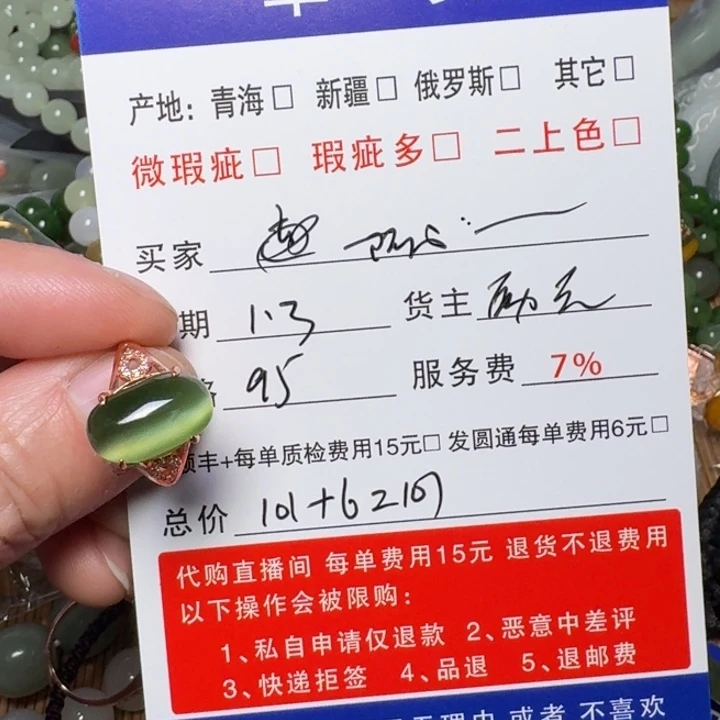 产地：青海□ 新疆□ 俄罗斯□ 其它□
微瑕疵□ 瑕疵多□ 二上色□
买家
期 1.3 货主
95 服务费 7%
顺丰+每单质检费用15元□ 发圆通每单费用6元□
总价 101+6=107
代购直播间 每单费用15元 退货不退费用
以下操作会被限购：
1、私自申请仅退款 2、恶意中差评
3、快递拒签 4、品退 5、退邮费
理由 或者 不喜欢